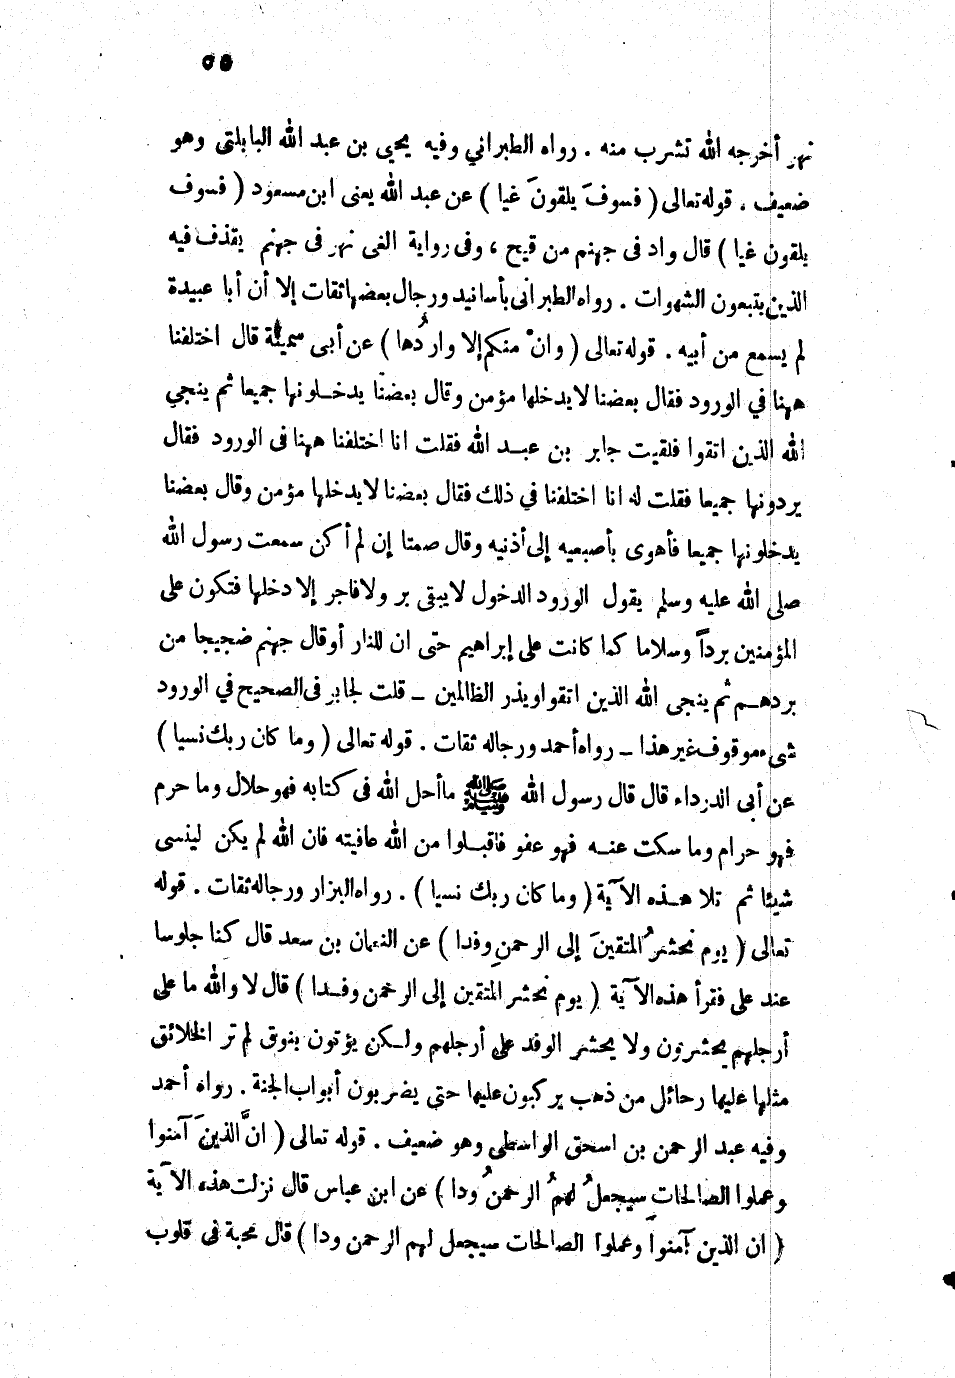 ٥٥
نهر أخرجه الله تشرب منه . رواه الطبراني وفيه يحيى بن عبد الله البابلتى وهو
ضعيف . قوله تعالى ( فسوفَ يلقونَ غيا ) عن عبد الله يعنى ابن مسعود ( فسوف
يلقون غيا ) قال واد فى جهنم من قيح ، وفى رواية الغى نهر فى جهنم يقذف فيه
الذين يتبعون الشهوات . رواه الطبرانى بأسانيد ورجال بعضها ثقات إلا أن أبا عبيدة
لم يسمع من أبيه . قوله تعالى ( وانْ منكم إلا واردُها ) عن أبى سمية قال اختلفنا
ههنا في الورود فقال بعضنا لا يدخلها مؤمن وقال بعضنا يدخــلونها جميعا ثم ينجي
الله الذين اتقوا فلقيت جابر بن عبــد الله فقلت انا اختلفنا ههنا فى الورود فقال
يردونها جميعا فقلت له انا اختلفنا في ذلك فقال بعضنا لا يدخلها مؤمن وقال بعضنا
يدخلونها جميعا فأهوى بأصبعيه إلى أذنيه وقال صمتا إن لم أكن سمعت رسول الله
صلى الله عليه وسلم يقول الورود الدخول لا يبقى بر ولا فاجر إلا دخلها فتكون على
المؤمنين برداً وسلاما كما كانت على إبراهيم حتى ان للنار أو قال جهنم ضجيجا من
بردهــم ثم ينجى الله الذين اتقوا ويذر الظالمين ــ قلت لجابر فى الصحيح في الورود
شىء موقوف غير هذا ــ رواه أحمد ورجاله ثقات . قوله تعالى ( وما كان ربك نسيا )
عن أبى الدرداء قال قال رسول الله ﷺ ما أحل الله فى كتابه فهو حلال وما حرم
فهو حرام وما سكت عنــه فهو عفو فاقبــلوا من الله عافيته فان الله لم يكن لينسى
شيئا ثم تلا هــذه الآية ( وما كان ربك نسيا ) . رواه البزار ورجاله ثقات . قوله
تعالى ( يوم نحشرُ المتقينَ إلى الرحمنِ وفدا ) عن النعمان بن سعد قال كنا جلوسا
عند على فقرأ هذه الآية ( يوم نحشر المتقين إلى الرحمن وفــدا ) قال لا والله ما على
أرجلهم يحشرون ولا يحشر الوفد على أرجلهم ولــكن يؤتون بنوق لم تر الخلائق
مثلها عليها رحائل من ذهب يركبون عليها حتى يضربون أبواب الجنة . رواه أحمد
وفيه عبد الرحمن بن اسحق الواسطى وهو ضعيف . قوله تعالى ( انَّ الذينَ آمنوا
وعملوا الصالحات سيجعلُ لهمُ الرحمنُ ودا ) عن ابن عباس قال نزلت هذه الآية
( ان الذين آمنوا وعملوا الصالحات سيجعل لهم الرحمن ودا ) قال محبة فى قلوب